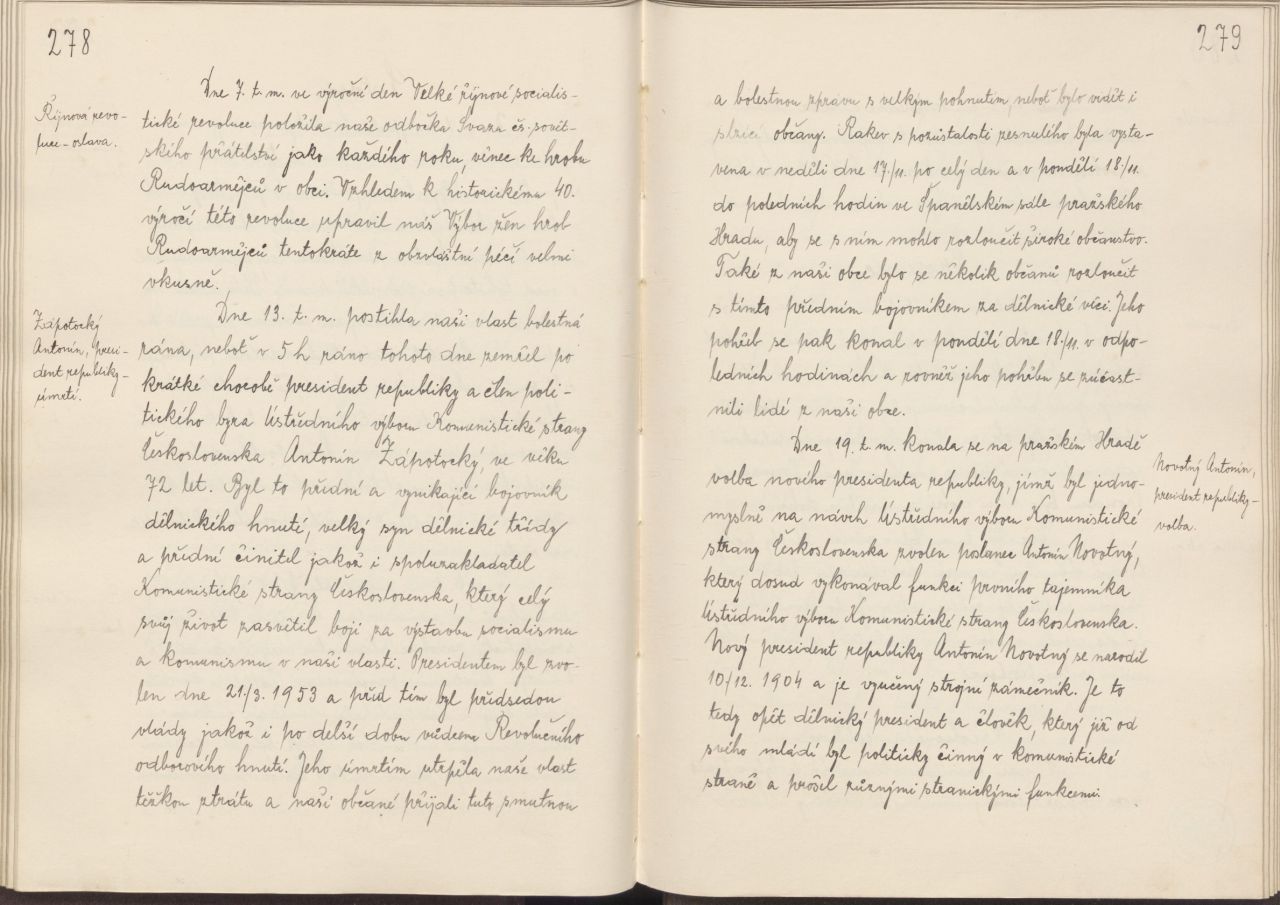 278
Říjnová revo-
luce - oslava.
Dne 7. t. m. ve výroční den Velké říjnové socialis-
tické revoluce položila naše odbočka Svazu čs. sovět-
ského přátelství jako každého roku, věnec ke hrobu
Rudoarmějců v obci. Vzhledem k historickému 40.
výročí této revoluce upravil náš Výbor žen hrob
Rudoarmějců tentokráte z obzvláštní péčí velmi
vkusně.
Zápotocký
Antonín, presi-
dent republiky-
úmrtí.
Dne 13. t. m. postihla naši vlast bolestná
rána, neboť v 5 h ráno tohoto dne zemřel po
krátké chorobě president republiky a člen poli-
tického byra Ústředního výboru Komunistické strany
Československa Antonín Zápotocký, ve věku
72 let. Byl to přední a vynikající bojovník
dělnického hnutí, velký syn dělnické třídy
a přední činitel jakož i spoluzakladatel
Komunistické strany Československa, který celý
svůj život zasvětil boji za výstavbu socialismu
a komunismu v naši vlasti. Presidentem byl zvo-
len dne 21./3. 1953 a před tím byl předsedou
vlády jakož i po delší dobu vůdcem Revolučního
odborového hnutí. Jeho úmrtím utrpěla naše vlast
těžkou ztrátu a naši občané přijali tuto smutnou
279
a bolestnou zprávu s velkým pohnutím, neboť bylo vidět i
slzící občany. Rakev s pozůstalostí zesnulého byla vysta-
vena v neděli dne 17./11. po celý den a v pondělí 18./11.
do poledních hodin ve Španělském sále pražského
Hradu, aby se s ním mohlo rozloučit široké občanstvo.
Také z naši obce bylo se několik občanů rozloučit
s tímto předním bojovníkem za dělnické věci. Jeho
pohřeb se pak konal v pondělí dne 18./11. v odpo-
ledních hodinách a rovněž jeho pohřbu se zúčast-
nili lidé z naši obce.
Dne 19. t. m. konala se na pražském Hradě
volba nového presidenta republiky, jímž byl jedno-
myslně na návrh Ústředního výboru Komunistické
strany Československa zvolen poslanec Antonín Novotný,
který dosud vykonával funkci prvního tajemníka
Ústředního výboru Komunistické strany Československa.
Nový president republiky Antonín Novotný se narodil
10/12. 1904 a je vyučený strojní zámečník. Je to
tedy opět dělnický president a člověk, který již od
svého mládí byl politicky činný v komunistické
straně a prošel různými stranickými funkcemi.
Novotný Antonín,
president republiky-
volba.